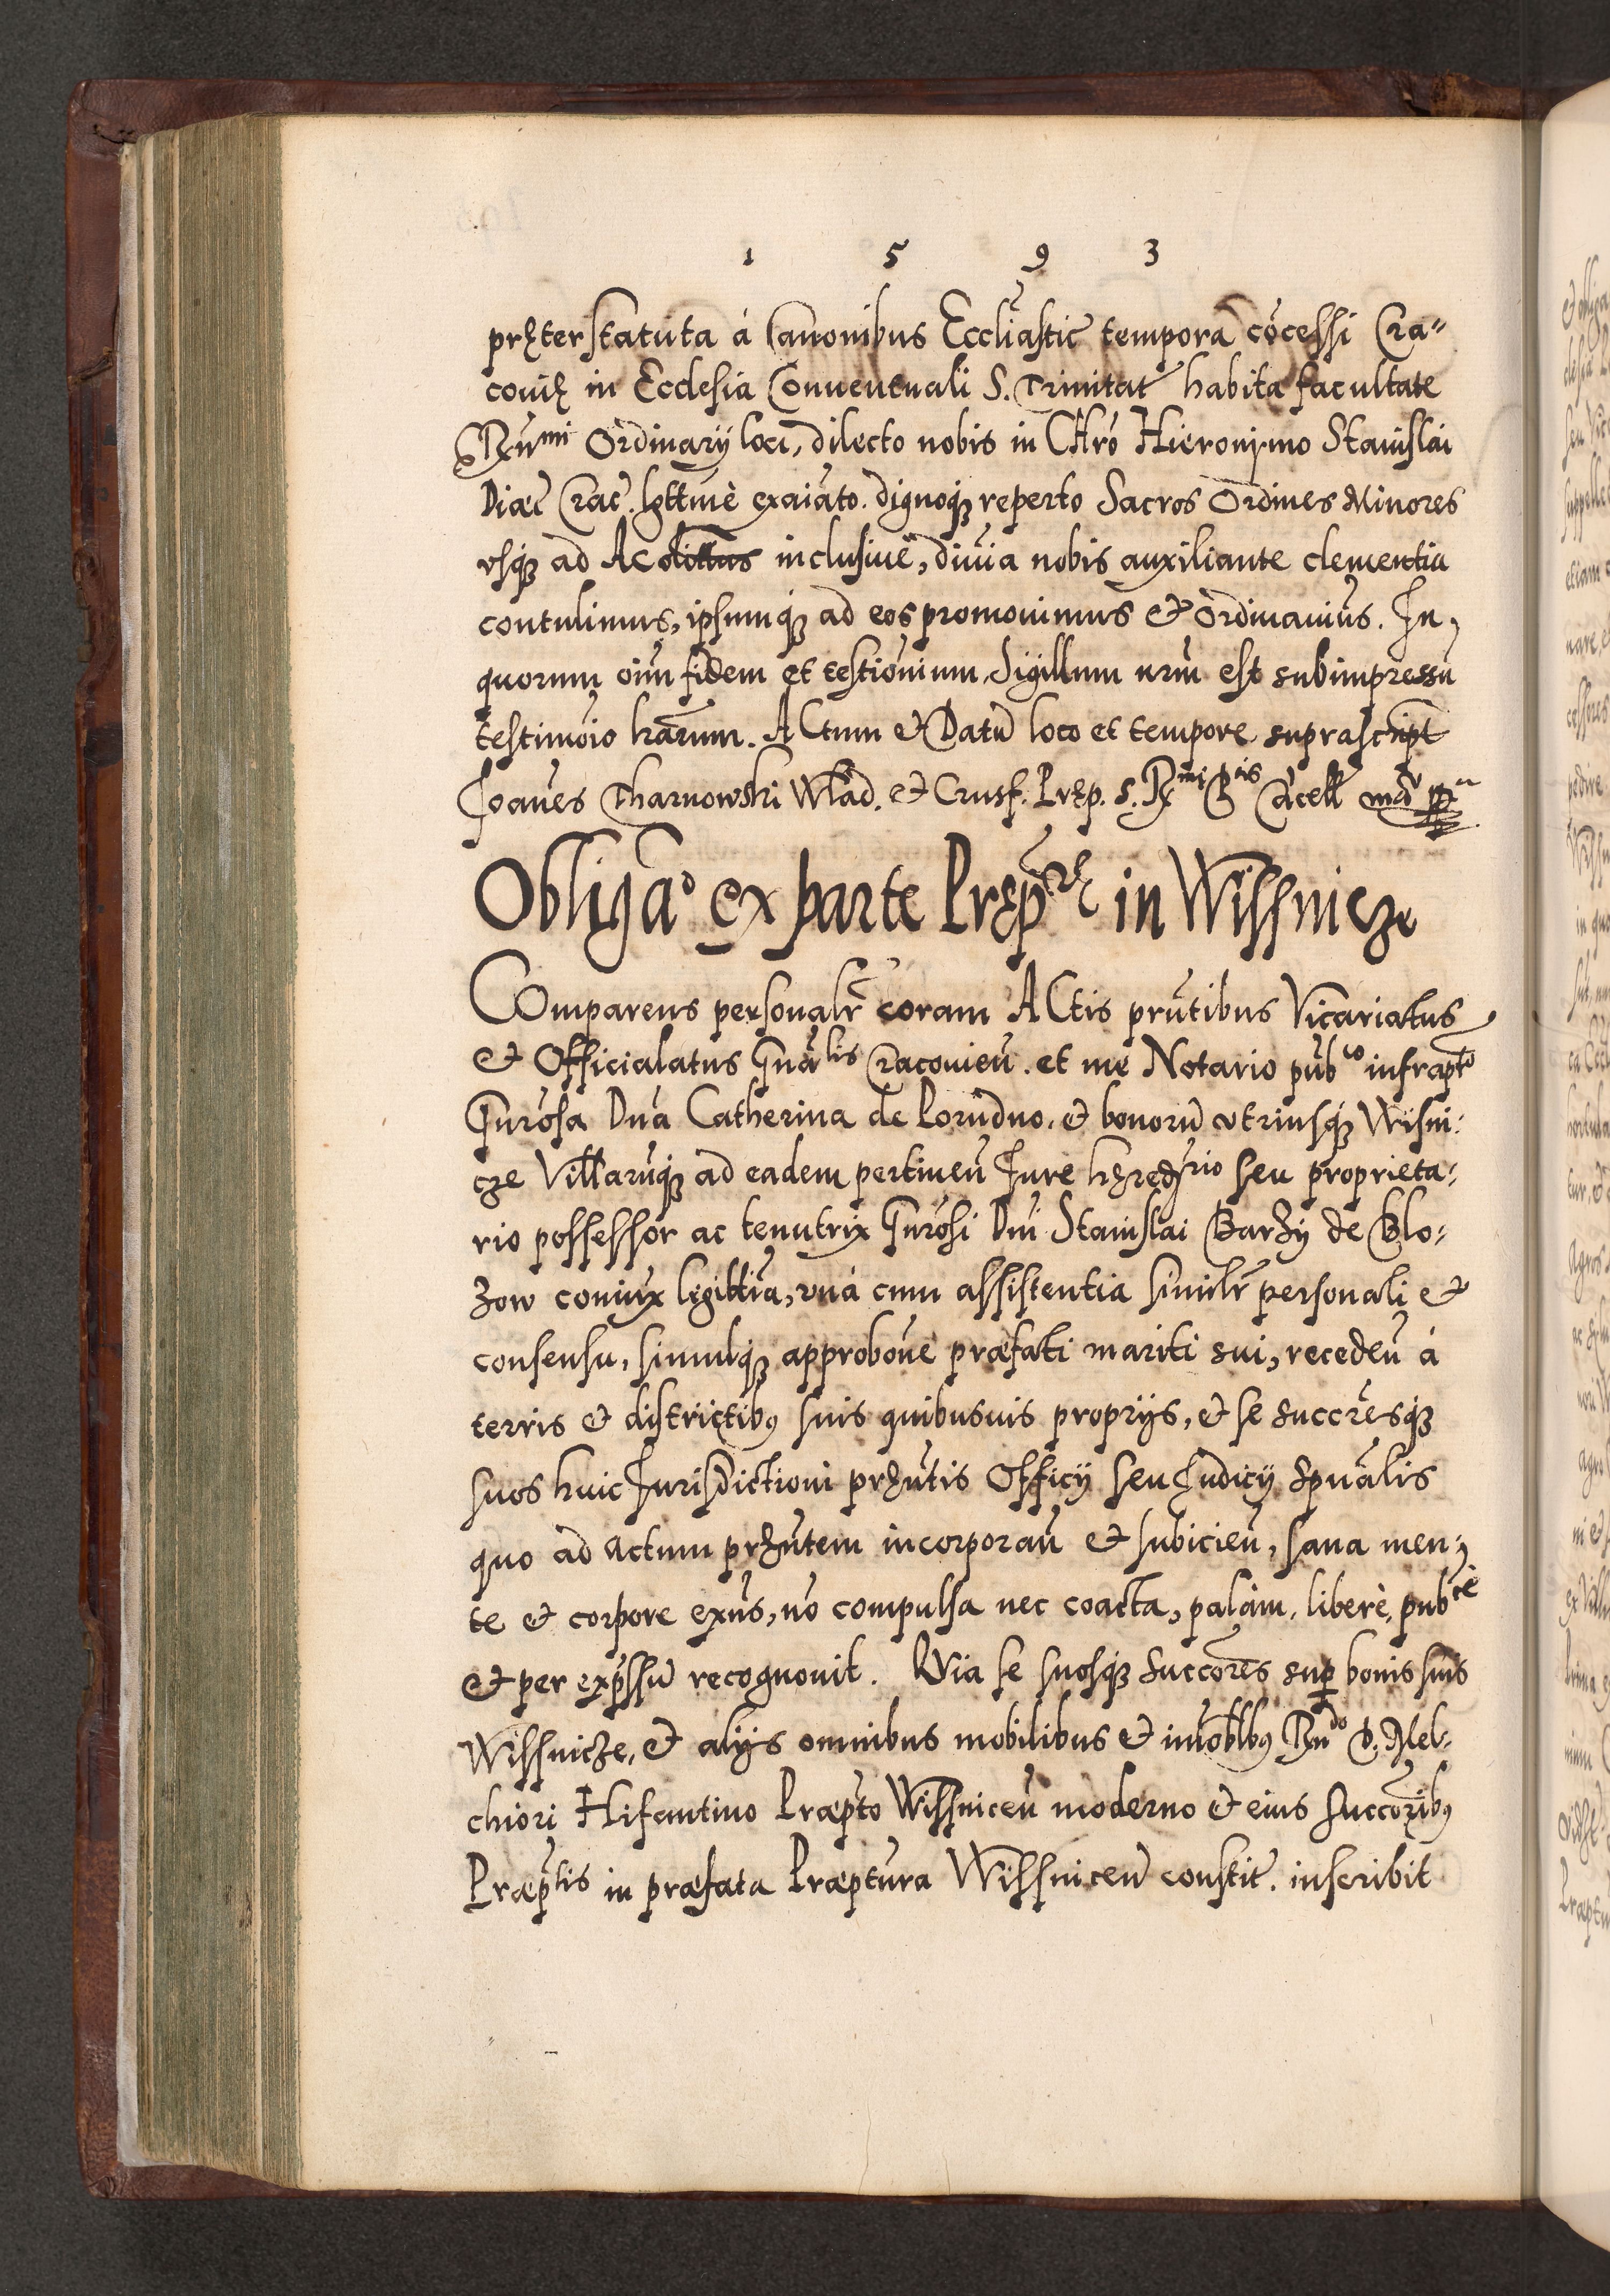 1 5 9 3
pręter statuta á Canonibus Eccliãstic̃ tempora cõcessi Cra-
covię in Ecclesia Conventuali S. Trinitat̃ habita facultate
Rñmi Ordinarÿ loci, dilecto nobis in Chrõ Hieronÿmo Stanislai
Diæc̃ Crac̃. lgttimè exaiãto. dignoq́ꝫ reperto Sacros Ordines Minores
vsq́ꝫ ad Acolittus inclusiuè, diuĩa nobis auxiliante clementia
contulimus, ipsumq́ꝫ ad eos promouimus & ordinauiũs. In,
quorum oĩm fidem et testiõnium, Sigillum nrũm est subimpressũ
testimõio harum. Actum & Datũ loco et tempore suprascript̃
Joañes Tharnowski Wlad. & Crusf. Pręp. S. Rmi Ptis Cãcell mã pp̃a
Obligaõ ex parte Pręprę in Wissnicze
Comparens personalr̃ coram Actis prñtibus Vicariatus
& Officialatus Gnãlis Cracovieñ. et me Notario pub̃co infrapto
Gnrõsa Dnã Catherina de Porudno. & bonorũ vtriusq́ꝫ Wisni-
cze Villarũq́ꝫ ad eadem pertineñ Jure hęredrio seu proprieta-
rio possessor̃ ac tenutrix Gnrõsi Dni Stanislai Barzÿ de Blo-
zow coniux legittĩa, vná cum assistentia similr̃ personali &
consensu, simulq́ꝫ approboñe præfati mariti sui, recedeñ á
terris & districtibꝰ suis quibusuis proprÿs, & se succrẽsq́ꝫ
suos huic Jurisdictioni pręñtis Officÿ seu Judicÿ Spuãlis
quo ad Actum pręñtem incorporañ & subicieñ, sana men,
te & corpore exñs, nõ compulsa nec coacta, palàm, liberè, pubcè
& per exp̃ssũ recognouit. Quia se suosq́ꝫ succõres sup̱ bonis suis
Wissnicze, & alÿs omnibus mobilibus & im̃oblbꝰ Rñdo D. Mel-
chiori Hifantino Præpto Wissniceñ moderno & eius succõribꝰ
Præptis in præfata Præptura Wissniceñ constit̃. inscribit